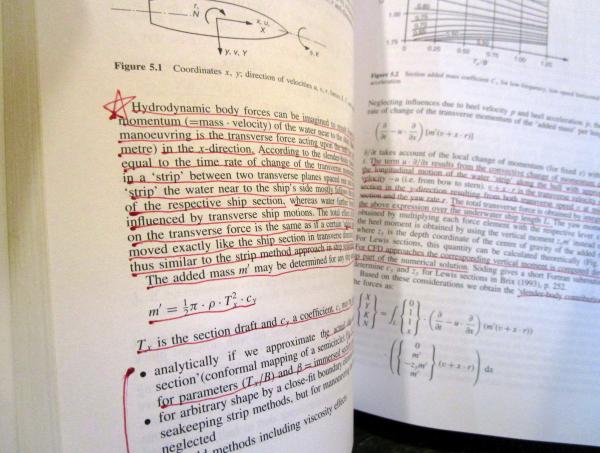 r,
N
x, u,
X
y, v, Y
Figure 5.1 Coordinates x, y; direction of velocities u, v, r,
Hydrodynamic body forces can be imagined
momentum (=mass · velocity) of the water near to the
manoeuvring is the transverse force acting upon the
metre) in the x-direction. According to the slender-body
equal to the time rate of change of the transverse
in a 'strip' between two transverse planes spaced
'strip' the water near to the ship's side mostly follows
of the respective ship section, whereas water further
influenced by transverse ship motions. The total effect
on the transverse force is the same as if a certain
moved exactly like the ship section in transverse
thus similar to the strip method approach in ship
The added mass m′ may be determined for any
m′ = ½π · ρ · Tₓ² · c_y
Tₓ is the section draft and c_y a coefficient.
• analytically if we approximate the actual
section' (conformal mapping of a semicircle)
for parameters (Tₓ/B) and β = immersed
• for arbitrary shape by a close-fit boundary
seakeeping strip methods, but for manoeuvring
neglected
methods including viscosity effects
1.00
1.75
0 0.25 0.50 0.75 1.00 1.25
Figure 5.2 Section added mass coefficient C, for low-frequency, low-speed horizontal
acceleration
Neglecting influences due to heel velocity p and heel acceleration
rate of change of the transverse momentum of the 'added mass' per
(∂/∂t − u · ∂/∂x) [m′(v + x · r)]
∂/∂t takes account of the local change of momentum (for fixed x) with
t. The term u · ∂/∂x results from the convective change
the longitudinal motion of the water
velocity −u (i.e. from bow to stern). v + x · r is the
section in the y-direction resulting from both transverse
section and the yaw rate r. The total transverse force is obtained
the above expression over the underwater ship length
obtained by multiplying each force element with the
the heel moment is obtained by using the vertical moment z_y m′
where z_y is the depth coordinate of the centre of gravity of the added
For Lewis sections, this quantity can be calculated theoretically
For CFD approaches the corresponding vertical moment is computed
as part of the numerical solution. Söding gives a short Fortran
determine c_y and z_y for Lewis sections in Brix (1993), p. 252.
Based on these considerations we obtain the 'slender-body contribution
the forces as:
{X Y K N} = ∫ {0 1 1 1} · (∂/∂t − u · ∂/∂x) (m′(v + x · r))
· ({0 m′ −z_y m′ m′} (v + x · r)) dx